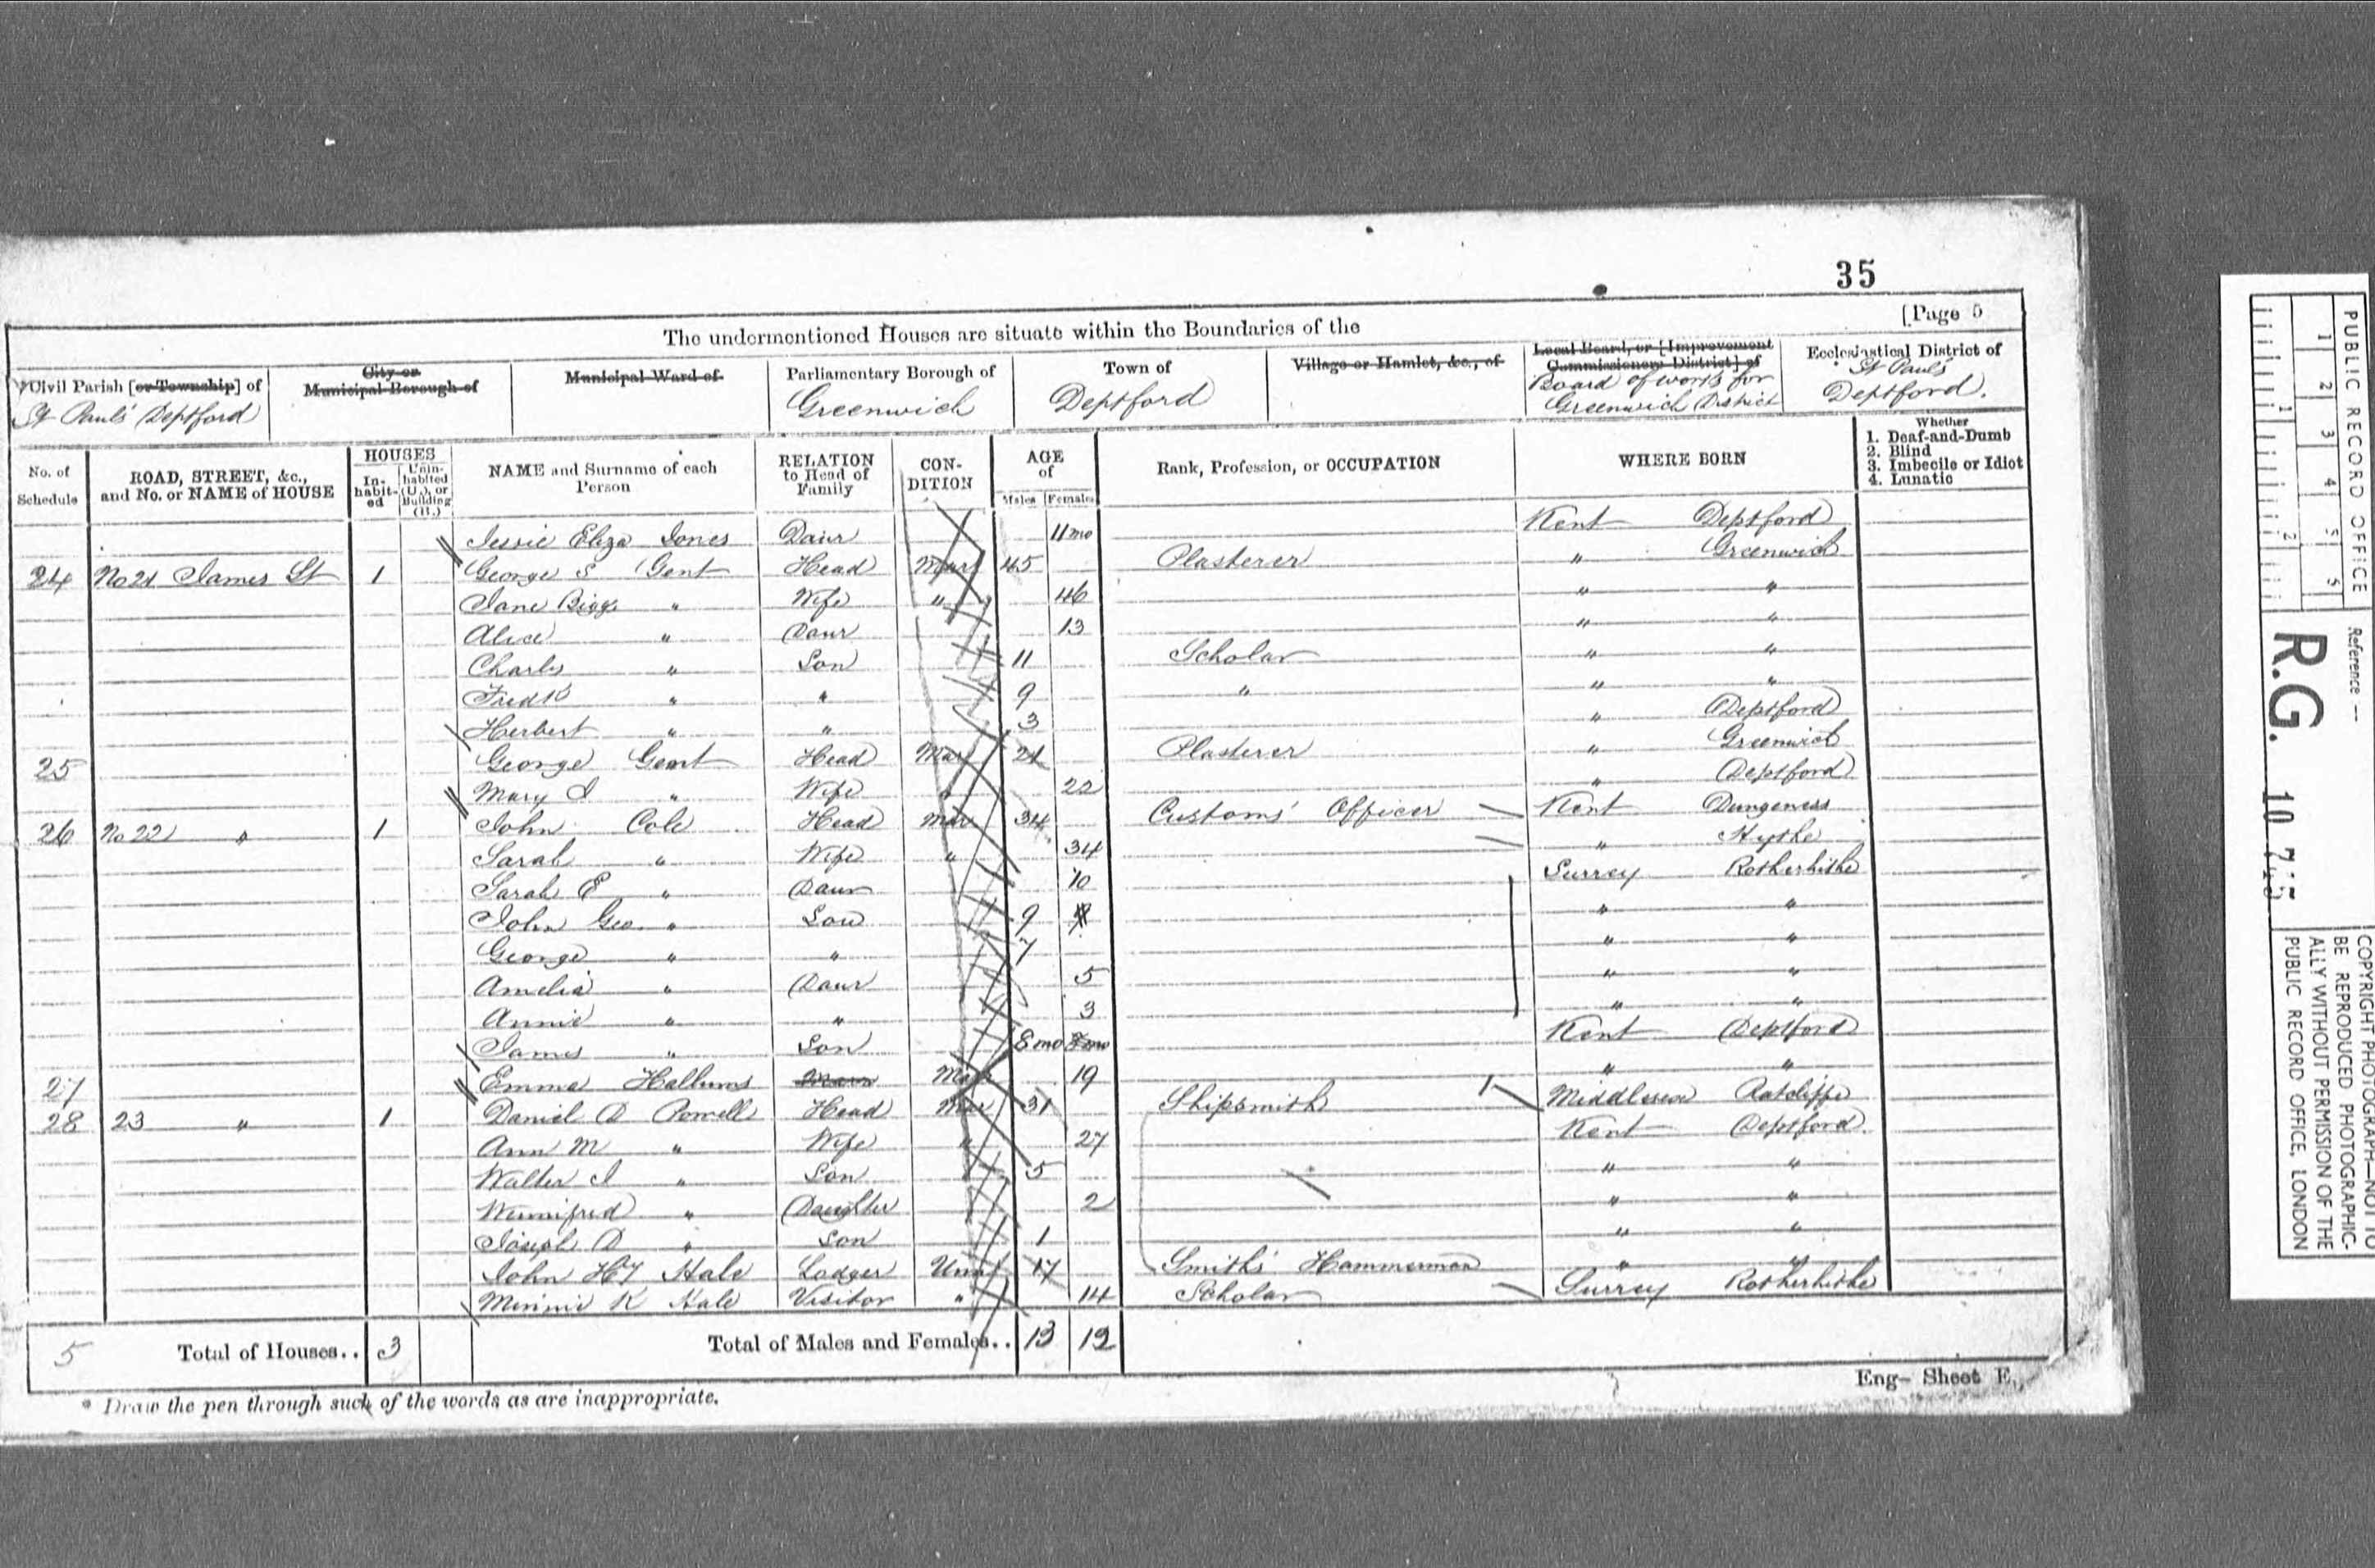 35
[Page 5
The undermentioned Houses are situate within the Boundaries of the
Civil Parish [or Township] of
St Pauls' Deptford
City or
Municipal Borough of
Municipal Ward of
Parliamentary Borough of
Greenwich
Town of
Deptford
Village or Hamlet, &c., of
Local Board, or [Improvement
Commissioners District] of
Board of works for
Greenwich District
Ecclesiastical District of
St Pauls'
Deptford.
No. of
Schedule
ROAD, STREET, &c.,
and No. or NAME of HOUSE
HOUSES
In-
habit-
ed
Unin-
habited
(U.), or
Building
(B.)
NAME and Surname of each
Person
RELATION
to Head of
Family
CON-
DITION
AGE
of
Males
Females
Rank, Profession, or OCCUPATION
WHERE BORN
Whether
1. Deaf-and-Dumb
2. Blind
3. Imbecile or Idiot
4. Lunatic
Jessie Eliza Jones Daur 11mo Kent Deptford
24 No 21 James St 1 George S Gent Head Mar 45 Plasterer " Greenwich
Jane " Wife " 46 " "
Alice " Daur 13 " "
Charles " Son 11 Scholar " "
Fredk " " 9 " " "
Herbert " " 3 " Deptford
25 George Gent Head Mar 21 Plasterer " Greenwich
Mary " Wife " 22 " Deptford
26 No 22 " 1 John Cole Head Mar 34 Customs' Officer Kent Dungeness
Sarah " Wife " 34 " Hythe
Sarah E " Daur 10 Surrey Rotherhithe
John Geo. " Son 9 " "
George " " 7 " "
Amelia " Daur 5 " "
Annie " " 3 " "
James " Son 8mo Kent Deptford
27 Emma Mar 19 " "
28 23 " 1 Daniel D Powell Head Mar 31 Shipsmith Middlesex Ratcliffe
Ann M " Wife " 27 Kent Deptford.
Walter J " Son 5 " "
Winnifred " Daughter 2 " "
Joseph D " Son 1 " "
John Hy Hale Lodger Unm 17 Smiths' Hammerman " "
Minnie K Hale Visitor " 14 Scholar Surrey Rotherhithe
5 Total of Houses.. 3 Total of Males and Females.. 13 12
Eng- Sheet E.
* Draw the pen through such of the words as are inappropriate.
PUBLIC RECORD OFFICE
Reference —
1 2 3 4 5
1 2
R.G. 10
COPYRIGHT PHOTOGRAPH—NOT TO
BE REPRODUCED PHOTOGRAPHIC-
ALLY WITHOUT PERMISSION OF THE
PUBLIC RECORD OFFICE, LONDON